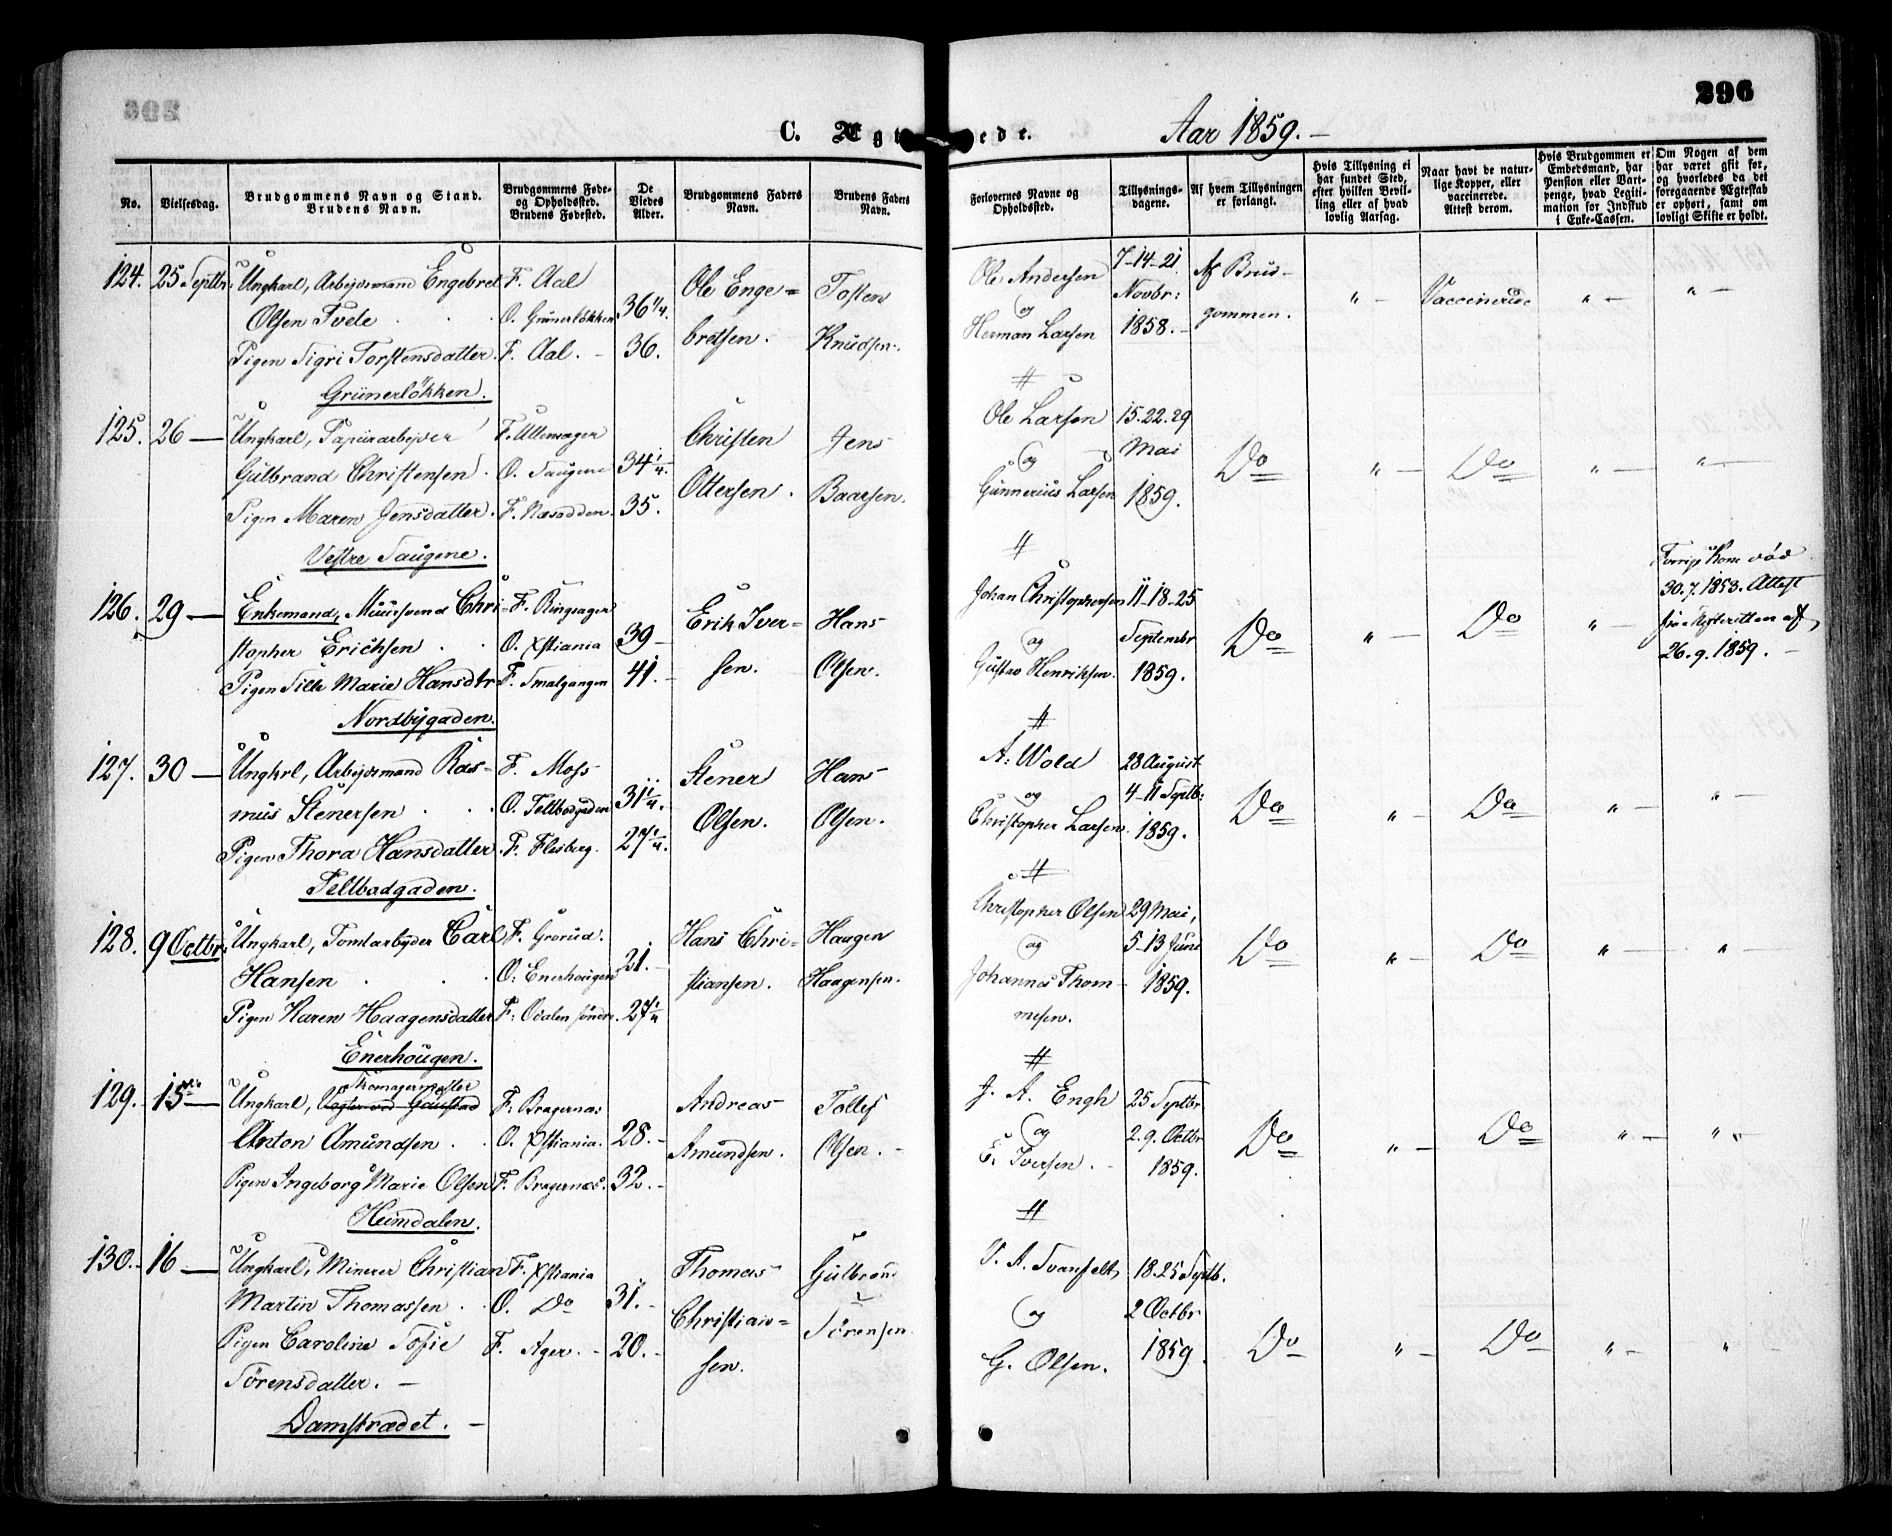 296
C. Ægt ede. Aar 1859.-
No. Vielsesdag. Brudgommens Navn og Stand. Brudens Navn. Brudgommens Føde- og Opholdssted. Brudens Fødested. De Viedes Alder. Brudgommens Faders Navn. Brudens Faders Navn. Forlovernes Navne og Opholdssted. Tillysnings-dagene. Af hvem Tillysningen er forlangt. Hvis Tillysning ei har fundet Sted, efter hvilken Bevilling eller af hvad lovlig Aarsag. Naar havt de naturlige Kopper, eller vaccinerede. Attest derom. Hvis Brudgommen er Embedsmand, har Pension eller Vartpenge, hvad Legitimation for Indskud i Enke-Cassen. Om Nogen af dem har været gift før, og hvorledes da det foregaaende Ægteskab er ophørt, samt om lovligt Skifte er holdt.
124. 25 Septbr. Ungkarl, Arbejdsmand Engebret F. Aal Ole Enge= Tosten Ole Andersen 7-14-21 Af Brud-
Olsen Tvete O. Grünerløkken 36 1/4. og Novbr: " Vaccinerede " "
Pigen Sigri Torstensdatter. F. Aal. - 36. bretsen. Knudsen. Herman Larsen 1858.- gommen.
Grünerløkken.
125. 26 — Ungkarl, Papirarbejder F. Ullensager Christen Jens Ole Larsen 15.22.29
Gulbrand Christensen. O. Saugene 34 1/4. og Mai Do " Do " "
Pigen Maren Jensdatter. F. Næsodden. 35. Ottersen. Baarsen. Gunnerius Larsen 1859.
Vestre Saugene.
126. 29 — Enkemand, Muursvend Chri- F. Ringsager Erik Iver- Hans Johan Christophersen 11-18-25 Forrige Kone død
stopher Erichsen O. Xstiania 39- og Septembr Do " Do " 30.7.1853. Attest
Pigen Marie Hansdtr F. Smalgangen 41.- sen. Olsen. Gustav Henriksen. 1859. fra Skifteretten af
Nordbygaden. 26.9.1859.-
127. 30 — Ungkrl, Arbejdsmand Ras- F. Moss Stener Hans A. Wold 28 August
mus Stenersen O. Teltbodgaden 31 1/4. og 4-11 Septb: Do " Do " "
Pigen Thora Hansdatter. F. Flesberg. 27 1/4. Olsen. Olsen. Christopher Larsen. 1859.
Teltbodgaden.
128. 9 Octbr. Ungkarl, Tomtarbejder Carl F. Grorud. Hans Chri- Haagen Christopher Olsen 29 Mai,
Hansen O: Enerhougen 21.- og 5-13 Juni Do " Do " "
stiansen. Haagensen. Johannes Thom- 1859.
Pigen Karen Haagensdatter F: Odalen søndre. 27 1/4 mesen.
Enerhougen.
129. 15de — Ungkarl, Vagter ved Gaustad F: Bragernæs Andreas Tollef J. A. Engh 25 Septbr
Anton Amundsen O. Xstiania. 28.- og 2.9. Octbr Do " Do " "
Amundsen. Olsen.- Iversen.- 1859.
Pigen Ingeborg Marie Olsen F. Bragernæs. 32.-
Heimdalen.
130. 16 — Ungkarl, Minerer Christian F. Xstiania Thomas Gulbrand 18.25 Septb.
Martin Thomassen O. Do 31.- Christian= og 2 Octbr
Pigen Caroline Sofie F. Ager.- 20.- Sørensen 1859. Do " Do " "
Sørensdatter.- sen. G. Olsen.
Damstrædet.-